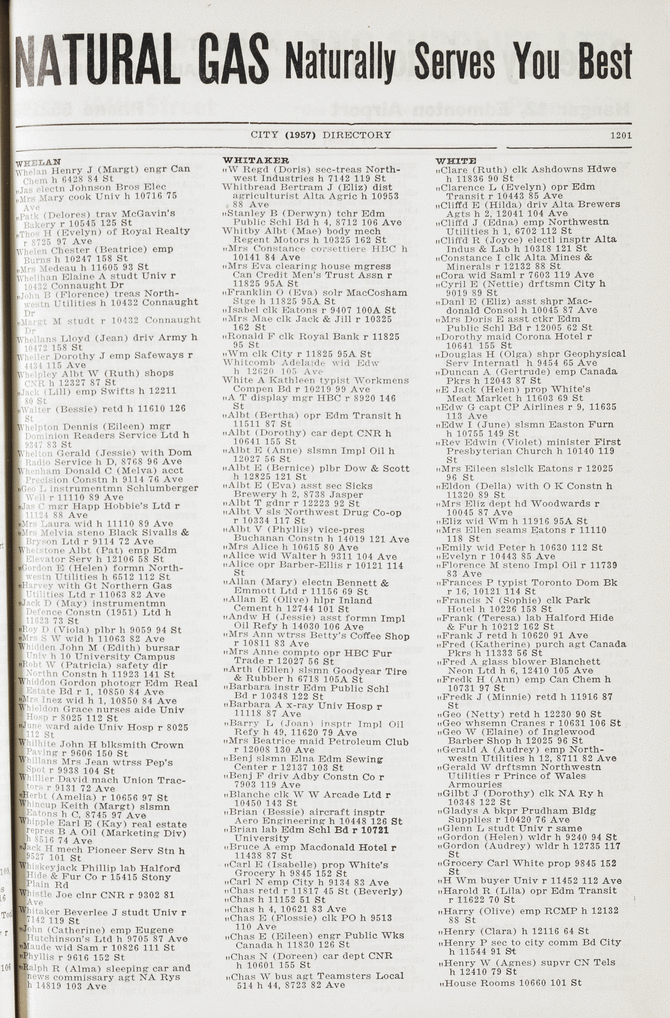 NATURAL GAS Naturally Serves You Best
CITY (1957) DIRECTORY 1201
WHELAN
Whelan Henry J (Margt) engr Can
Chem h 6428 84 St
„Jas electn Johnson Bros Elec
„Mrs Mary cook Univ h 10716 75
Ave
„Patk (Delores) trav McGavin's
Bakery r 10545 125 St
„Thos H (Evelyn) of Royal Realty
r 8725 97 Ave
Whelen Chester (Beatrice) emp
Burns h 10247 158 St
„Mrs Medeau h 11605 93 St
Whelihan Elaine A studt Univ r
10432 Connaught Dr
„John B (Florence) treas North-
westn Utilities h 10432 Connaught
Dr
„Margt M studt r 10432 Connaught
Dr
Whellans Lloyd (Jean) driv Army h
10472 158 St
Wheller Dorothy J emp Safeways r
4434 115 Ave
Whelpley Albt W (Ruth) shops
CNR h 12327 87 St
„Jack (Lill) emp Swifts h 12211
80 St
„Walter (Bessie) retd h 11610 126
St
Whelpton Dennis (Eileen) mgr
Dominion Readers Service Ltd h
9347 83 St
Whelton Gerald (Jessie) with Dom
Radio Service h D, 8768 96 Ave
Whenhan Donald C (Melva) acct
Precision Constn h 9114 76 Ave
„Geo L instrumentmn Schlumberger
Well r 11110 89 Ave
„Jas C mgr Happ Hobbie's Ltd r
11124 88 Ave
„Mrs Laura wid h 11110 89 Ave
„Mrs Melvia steno Black Sivalls &
Bryson Ltd r 9114 72 Ave
Whetstone Albt (Pat) emp Edm
Elevator Serv h 12106 58 St
„Gordon E (Helen) formn North-
westn Utilities h 6512 112 St
„Harvey with Gt Northern Gas
Utilities Ltd r 11063 82 Ave
„Jack D (May) instrumentmn
Defence Constn (1951) Ltd h
11623 73 St
„Roy D (Viola) plbr h 9059 94 St
„Mrs S W wid h 11063 82 Ave
Whidden John M (Edith) bursar
Univ h 10 University Campus
„Robt W (Patricia) safety dir
Northn Constn h 11923 141 St
Whiddon Gordon photogr Edm Real
Estate Bd r 1, 10850 84 Ave
„Mrs Inez wid h 1, 10850 84 Ave
Whieldon Grace nurses aide Univ
Hosp r 8025 112 St
„June ward aide Univ Hosp r 8025
112 St
Whilhite John H blksmith Crown
Paving r 9606 150 St
Whillans Mrs Jean wtrss Pep's
Spot r 9938 104 St
Whillier David mach Union Trac-
tors r 9131 72 Ave
„Herbt (Amelia) r 10656 97 St
Whincup Keith (Margt) slsmn
Eatons h C, 8745 97 Ave
Whipple Earl E (Kay) real estate
repres B A Oil (Marketing Div)
h 8516 74 Ave
„Jack H mech Pioneer Serv Stn h
9527 101 St
Whiskeyjack Phillip lab Halford
Hide & Fur Co r 15415 Stony
Plain Rd
Whistle Joe clnr CNR r 9302 81
Ave
Whitaker Beverlee J studt Univ r
7142 119 St
„John (Catherine) emp Eugene
Hutchinson's Ltd h 9705 87 Ave
„Maude wid Sam r 10826 111 St
„Phyllis r 9616 152 St
„Ralph R (Alma) sleeping car and
news commissary agt NA Rys
h 14819 103 Ave
WHITAKER
„W Regd (Doris) sec-treas North-
west Industries h 7142 119 St
Whitbread Bertram J (Eliz) dist
agriculturist Alta Agric h 10953
88 Ave
„Stanley B (Derwyn) tchr Edm
Public Schl Bd h 4, 8712 106 Ave
Whitby Albt (Mae) body mech
Regent Motors h 10325 162 St
„Mrs Constance corsettiere HBC h
10141 84 Ave
„Mrs Eva clearing house mgress
Can Credit Men's Trust Assn r
11825 95A St
„Franklin O (Eva) solr MacCosham
Stge h 11825 95A St
„Isabel clk Eatons r 9407 100A St
„Mrs Mae clk Jack & Jill r 10325
162 St
„Ronald F clk Royal Bank r 11825
95 St
„Wm clk City r 11825 95A St
Whitcomb Adelaide wid Edw
h 12620 105 Ave
White A Kathleen typist Workmens
Compen Bd r 10219 99 Ave
„A T display mgr HBC r 8920 146
St
„Albt (Bertha) opr Edm Transit h
11511 87 St
„Albt (Dorothy) car dept CNR h
10641 155 St
„Albt E (Anne) slsmn Impl Oil h
12027 56 St
„Albt E (Bernice) plbr Dow & Scott
h 12825 121 St
„Albt E (Eva) asst sec Sicks
Brewery h 2, 8738 Jasper
„Albt T gdnr r 12223 92 St
„Albt V sls Northwest Drug Co-op
r 10334 117 St
„Albt V (Phyllis) vice-pres
Buchanan Constn h 14019 121 Ave
„Mrs Alice h 10615 80 Ave
„Alice wid Walter h 9311 104 Ave
„Alice opr Barber-Ellis r 10121 114
St
„Allan (Mary) electn Bennett &
Emmott Ltd r 11156 69 St
„Allan E (Olive) hlpr Inland
Cement h 12744 101 St
„Andw H (Jessie) asst formn Impl
Oil Refy h 14030 106 Ave
„Mrs Ann wtrss Betty's Coffee Shop
r 10811 83 Ave
„Mrs Anne compto opr HBC Fur
Trade r 12027 56 St
„Arth (Ellen) slsmn Goodyear Tire
& Rubber h 6718 105A St
„Barbara instr Edm Public Schl
Bd r 10348 122 St
„Barbara A x-ray Univ Hosp r
11118 87 Ave
„Barry L (Joan) insptr Impl Oil
Refy h 49, 11620 79 Ave
„Mrs Beatrice maid Petroleum Club
r 12008 130 Ave
„Benj slsmn Elna Edm Sewing
Center r 12137 103 St
„Benj F driv Adby Constn Co r
7903 119 Ave
„Blanche clk W W Arcade Ltd r
10450 143 St
„Brian (Bessie) aircraft insptr
Aero Engineering h 10448 126 St
„Brian lab Edm Schl Bd r 10721
University
„Bruce A emp Macdonald Hotel r
11438 87 St
„Carl E (Isabelle) prop White's
Grocery h 9845 152 St
„Carl N emp City h 9134 83 Ave
„Chas retd r 11817 45 St (Beverly)
„Chas h 11152 51 St
„Chas h 4, 10621 83 Ave
„Chas E (Flossie) clk PO h 9513
110 Ave
„Chas E (Eileen) engr Public Wks
Canada h 11830 126 St
„Chas N (Doreen) car dept CNR
h 10601 155 St
„Chas W bus agt Teamsters Local
514 h 44, 8723 82 Ave
WHITE
„Clare (Ruth) clk Ashdowns Hdwe
h 11836 90 St
„Clarence L (Evelyn) opr Edm
Transit r 10443 85 Ave
„Cliffd E (Hilda) driv Alta Brewers
Agts h 2, 12041 104 Ave
„Cliffd J (Edna) emp Northwestn
Utilities h 1, 6702 112 St
„Cliffd R (Joyce) electl insptr Alta
Indus & Lab h 10318 121 St
„Constance I clk Alta Mines &
Minerals r 12132 88 St
„Cora wid Saml r 7603 119 Ave
„Cyril E (Nettie) drftsmn City h
9019 89 St
„Danl E (Eliz) asst shpr Mac-
donald Consol h 10045 87 Ave
„Mrs Doris E asst ctkr Edm
Public Schl Bd r 12005 62 St
„Dorothy maid Corona Hotel r
10641 155 St
„Douglas H (Olga) shpr Geophysical
Serv Internatl h 9454 65 Ave
„Duncan A (Gertrude) emp Canada
Pkrs h 12043 87 St
„E Jack (Helen) prop White's
Meat Market h 11603 69 St
„Edw G capt CP Airlines r 9, 11635
113 Ave
„Edw I (June) slsmn Easton Furn
h 10755 149 St
„Rev Edwin (Violet) minister First
Presbyterian Church h 10140 119
St
„Mrs Eileen slsclk Eatons r 12025
96 St
„Eldon (Della) with O K Constn h
11320 89 St
„Mrs Eliz dept hd Woodwards r
10045 87 Ave
„Eliz wid Wm h 11916 95A St
„Mrs Ellen seams Eatons r 11110
118 St
„Emily wid Peter h 10630 112 St
„Evelyn r 10443 85 Ave
„Florence M steno Impl Oil r 11739
83 Ave
„Frances P typist Toronto Dom Bk
r 16, 10121 114 St
„Francis N (Sophie) clk Park
Hotel h 10226 158 St
„Frank (Teresa) lab Halford Hide
& Fur h 10212 162 St
„Frank J retd h 10620 91 Ave
„Fred (Katherine) purch agt Canada
Pkrs h 11333 56 St
„Fred A glass blower Blanchett
Neon Ltd h 6, 12410 105 Ave
„Fredk H (Ann) emp Can Chem h
10731 97 St
„Fredk J (Minnie) retd h 11916 87
St
„Geo (Netty) retd h 12230 90 St
„Geo whsemn Cranes r 10631 106 St
„Geo W (Elaine) of Inglewood
Barber Shop h 12025 96 St
„Gerald A (Audrey) emp North-
westn Utilities h 12, 8711 82 Ave
„Gerald W drftsmn Northwestn
Utilities r Prince of Wales
Armouries
„Gilbt J (Dorothy) clk NA Ry h
10348 122 St
„Gladys A bkpr Prudham Bldg
Supplies r 10420 76 Ave
„Glenn L studt Univ r same
„Gordon (Helen) wldr h 9240 94 St
„Gordon (Audrey) wldr h 12735 117
St
„Grocery Carl White prop 9845 152
St
„H Wm buyer Univ r 11452 112 Ave
„Harold R (Lila) opr Edm Transit
r 11622 70 St
„Harry (Olive) emp RCMP h 12132
88 St
„Henry (Clara) h 12116 64 St
„Henry P sec to city comm Bd City
h 11544 91 St
„Henry W (Agnes) supvr CN Tels
h 12410 79 St
„House Rooms 10660 101 St